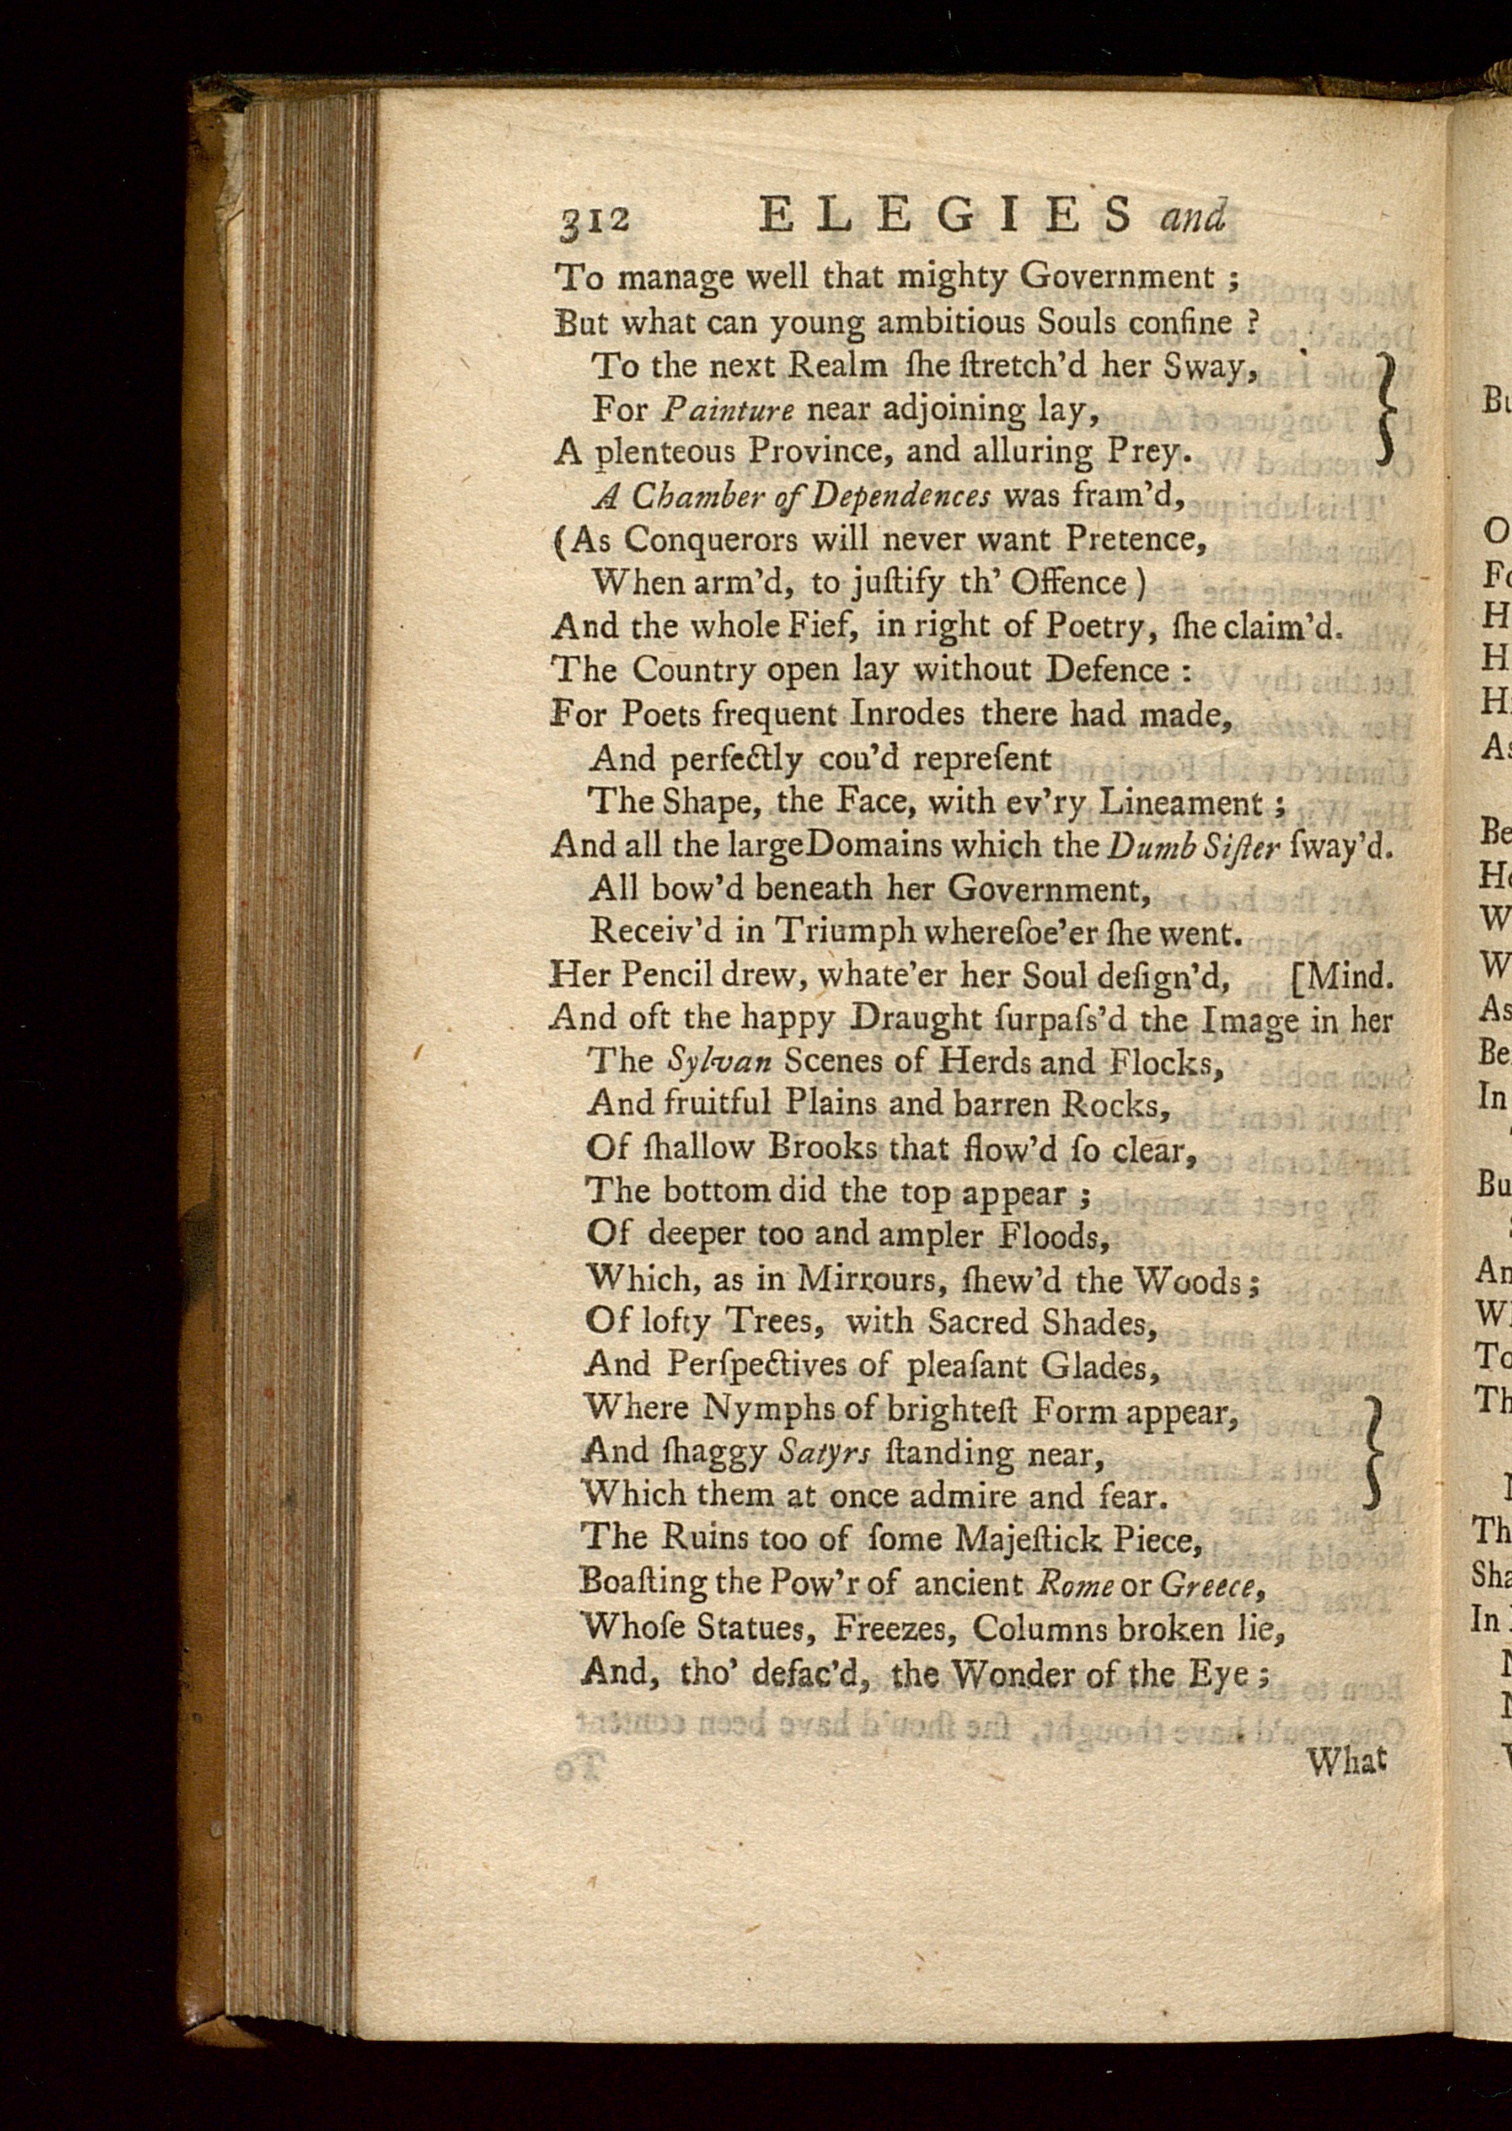 312 ELEGIES and
To manage well that mighty Government ;
But what can young ambitious Souls confine ?
To the next Realm ſhe ſtretch'd her Sway,
For Painture near adjoining lay,
A plenteous Province, and alluring Prey.
A Chamber of Dependences was fram'd,
(As Conquerors will never want Pretence,
When arm'd, to juſtify th' Offence)
And the whole Fief, in right of Poetry, ſhe claim'd.
The Country open lay without Defence :
For Poets frequent Inrodes there had made,
And perfectly cou'd repreſent
The Shape, the Face, with ev'ry Lineament ;
And all the large Domains which the Dumb Siſter ſway'd.
All bow'd beneath her Government,
Receiv'd in Triumph whereſoe'er ſhe went.
Her Pencil drew, whate'er her Soul deſign'd, [Mind.
And oft the happy Draught ſurpaſs'd the Image in her
The Sylvan Scenes of Herds and Flocks,
And fruitful Plains and barren Rocks,
Of ſhallow Brooks that flow'd ſo clear,
The bottom did the top appear ;
Of deeper too and ampler Floods,
Which, as in Mirrours, ſhew'd the Woods ;
Of lofty Trees, with Sacred Shades,
And Perſpectives of pleaſant Glades,
Where Nymphs of brighteſt Form appear,
And ſhaggy Satyrs ſtanding near,
Which them at once admire and fear.
The Ruins too of ſome Majeſtick Piece,
Boaſting the Pow'r of ancient Rome or Greece,
Whoſe Statues, Freezes, Columns broken lie,
And, tho' defac'd, the Wonder of the Eye ;
What